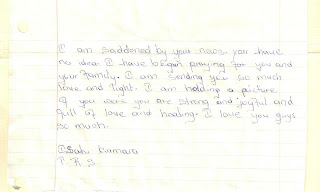 I am saddened by your news. you have
no idea. I have began praying for you and
your family. I am sending you so much
love and light. I am holding a picture
of you were you are strong and joyful and
full of love and healing. I love you guys
so much.
Kamara
P.R.S